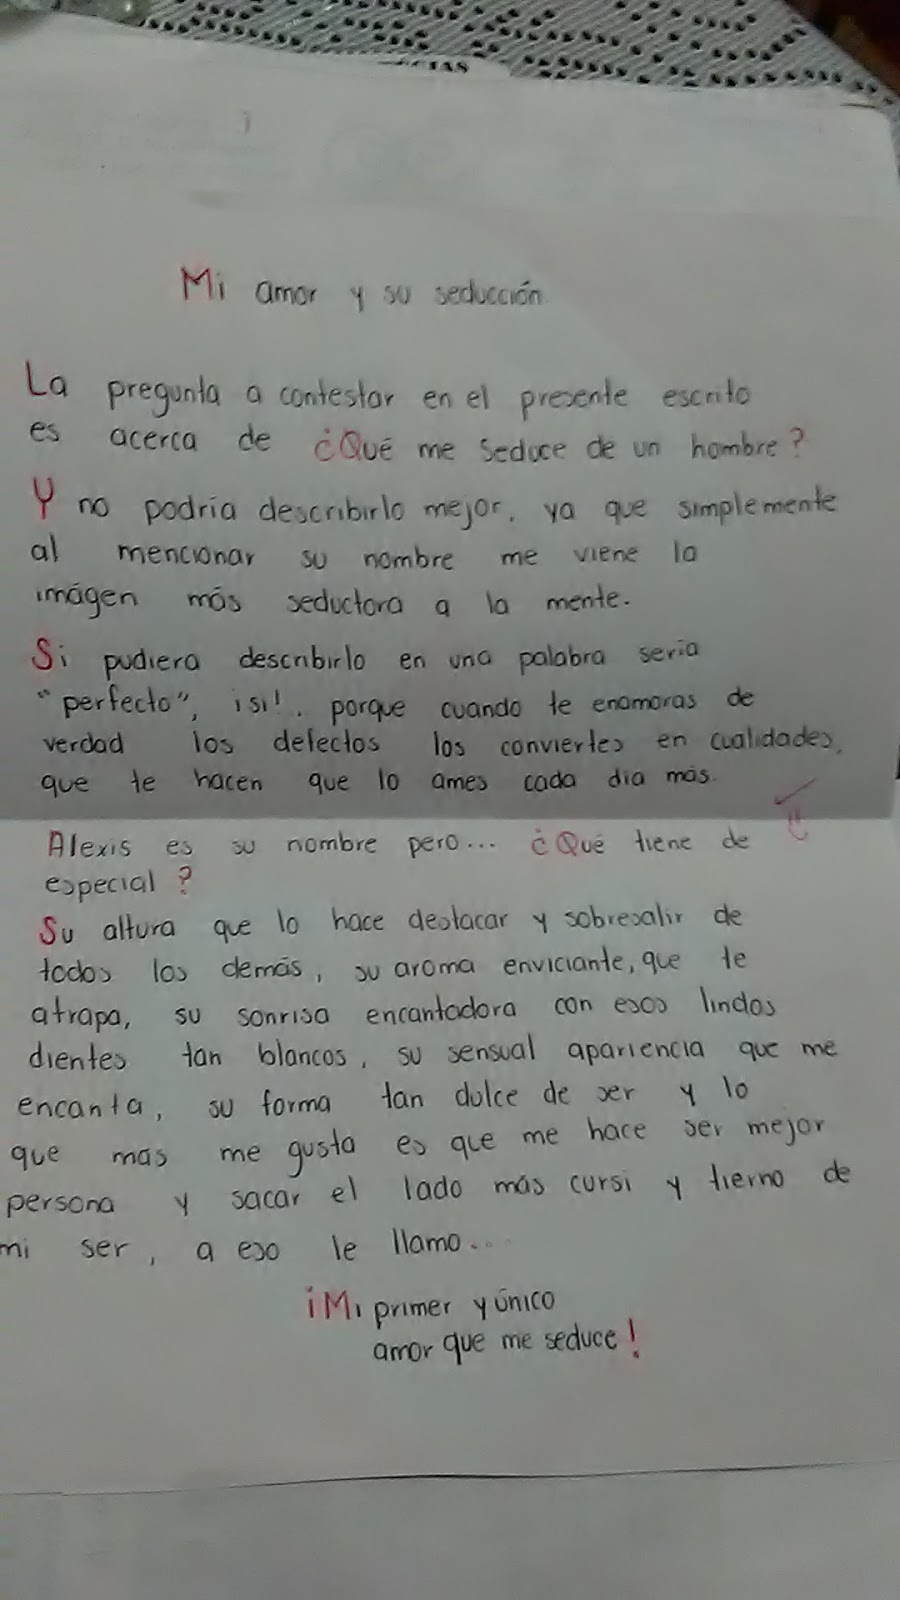 CIAS
Mi amor y su seducción
La pregunta a contestar en el presente escrito
es acerca de ¿Qué me seduce de un hombre?
Y no podría describirlo mejor, ya que simplemente
al mencionar su nombre me viene la
imágen más seductora a la mente.
Si pudiera describirlo en una palabra seria
"perfecto", ¡si!. porque cuando te enamoras de
verdad los defectos los conviertes en cualidades,
que te hacen que lo ames cada día más.
Alexis es su nombre pero... ¿Qué tiene de
especial?
Su altura que lo hace destacar y sobresalir de
todos los demás, su aroma enviciante, que te
atrapa, su sonrisa encantadora con esos lindos
dientes tan blancos, su sensual apariencia que me
encanta, su forma tan dulce de ser y lo
que mas me gusta es que me hace ser mejor
persona y sacar el lado más cursi y tierno de
mi ser, a eso le llamo...
¡Mi primer y único
amor que me seduce!